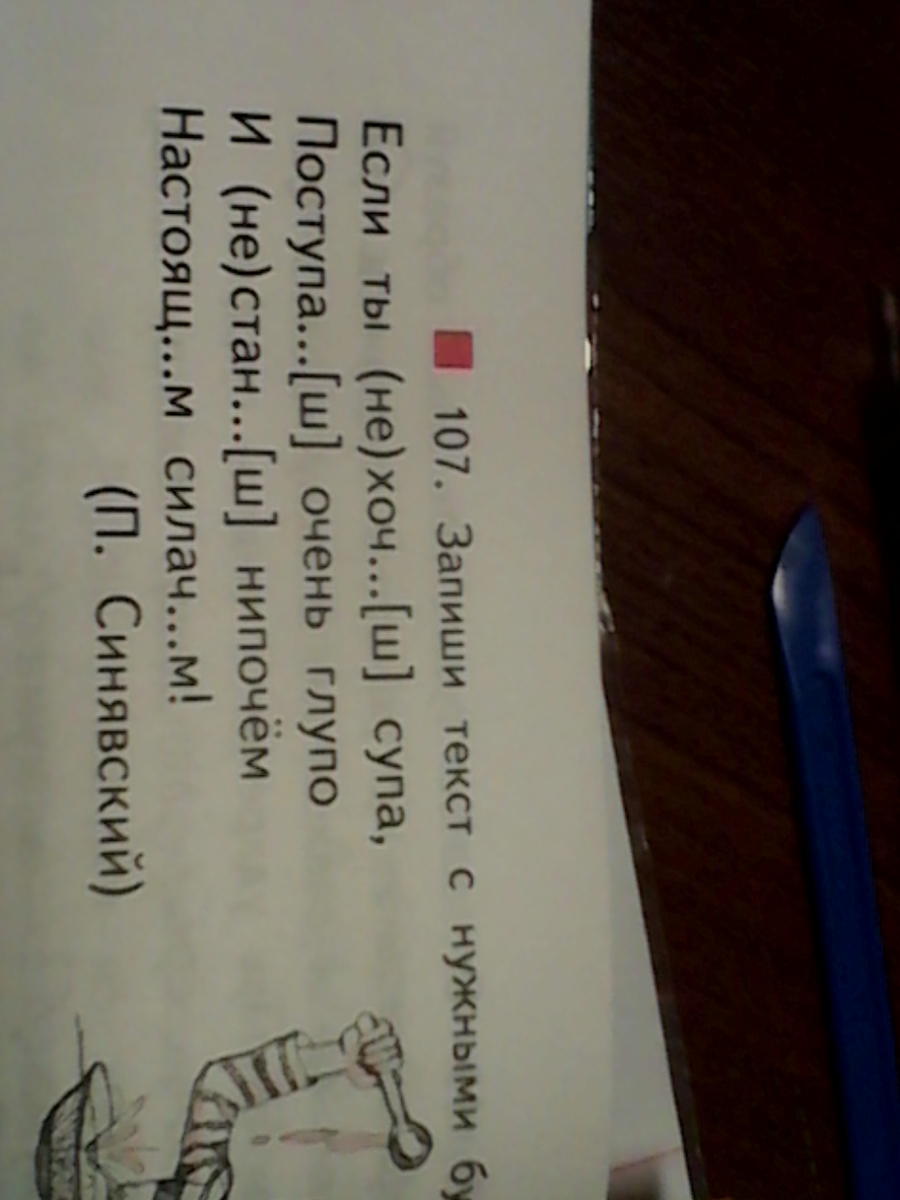 107. Запиши текст с нужными бу
Если ты (не)хоч...[ш] супа,
Поступа...[ш] очень глупо
И (не)стан...[ш] нипочём
Настоящ...м силач...м!
(П. Синявский)